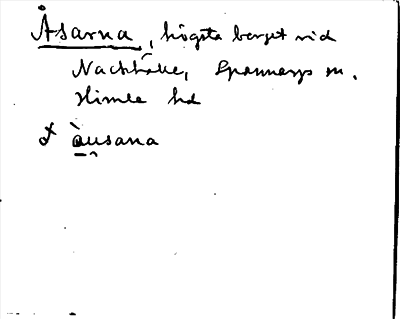 Åsarna, högsta berget vid
Nackhälle, Spannarps sn.
Himle hd
ɫ àusana